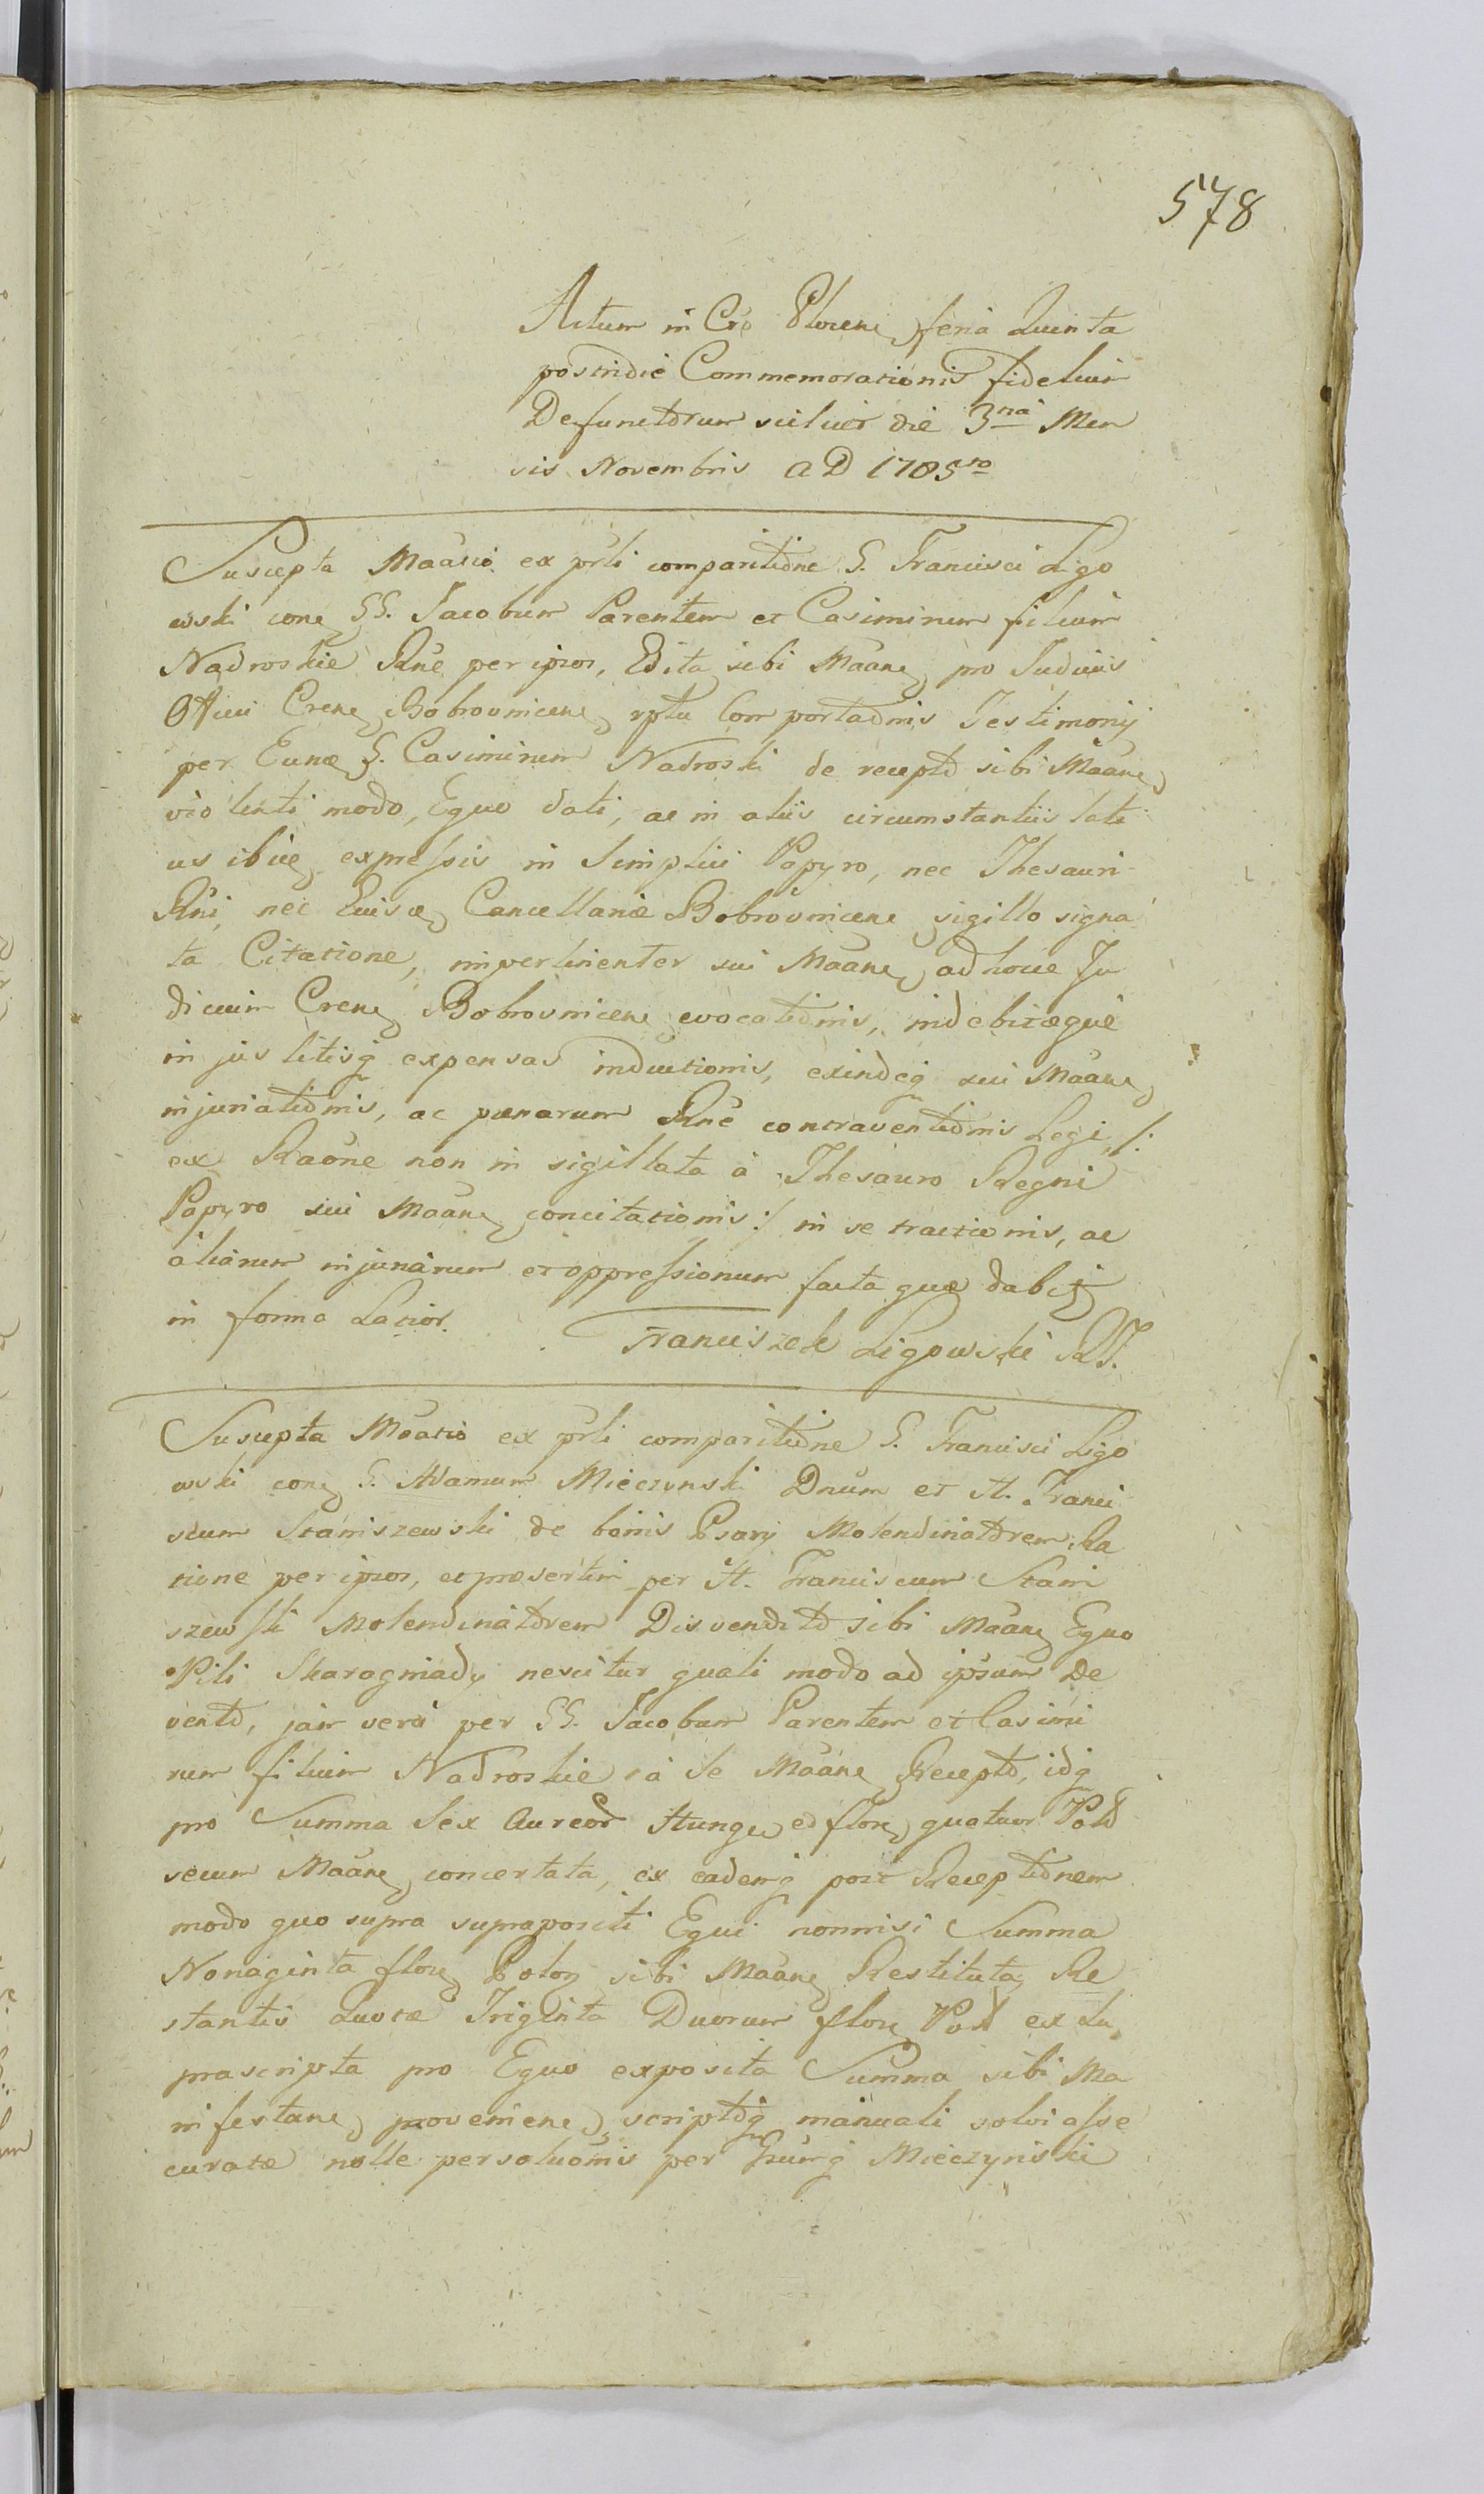 578
Actum in Cro Plocen feria Quinta
postridie Commemorationis fidelium
Defunctorum scilicet die 3tia Men
sis Novembris AD 1785to
Suscepta Maatio ex prli comparitione G. Francisci Ligo
wski con GG. Jacobum Parentem et Casimirum filium
Nadroskie Rne per ipsos, Edita sibi Maan pro Judiciis
Officii Cren Bobrovnicen rptu Comportaonis Testimonij
per Eunde G. Casimirum Nadroski de recepto sibi Maan
violenti modo, Equo dati, ac in aliis circumstantiis lati
us ibiq expressis in Simplici Papyro, nec Thesauri
Rni, nec Cancellariæ Bobrovnicen sigillo signa
ta Citatione, impertinenter sui Maan ad hocce Ju
dicium Cren Bobrovnicen evocationis, indebitæque
in jus litisq expensas inductionis, exindeq sui Maan
injuriationis, ac pænarum Rne contraventionis Legi, /:
ex Raone non in sigillata à Thesauro Regni
Papyro sui Maan concitationis :/ in se tractionis, ac
aliarum injuriarum et oppressionum facta quæ dabit
in forma Latior.
Franciszek Ligowski
Suscepta Maatio ex prli comparitione G. Francisci Ligo
wski con G. Adamum Mieczynski Dnum et H. Franci
scum Staniszewski de bonis Psary Molendinatorem Ra
tione per ipsos, et præsertim per H. Franciscum Stani
szewski Molendinatorem Disvendito sibi Maan Equo
Pili Skarogniady nescitur quali modo ad ipsum De
vento, jam vero per GG. Jacobum Parentem et Casimi
rum filium Nadroskie à Se Maan Recepto, idq
pro Summa Sex Aureor Hung et flor quatuor Pol
secum Maan concertata, ex eademq post Receptionem
modo quo supra suprapositi Equi nonnisi Summa
Nonaginta flor Polon sibi Maan Restituta, Re
stantis Quotæ Triginta Duorum flor Pol ex Su
prascripta pro Equo exposita Summa sibi Ma
nifestan provenien, scriptoq manuali solvi asse
curatæ nolle persoluonis per Gsumq Mieczynski